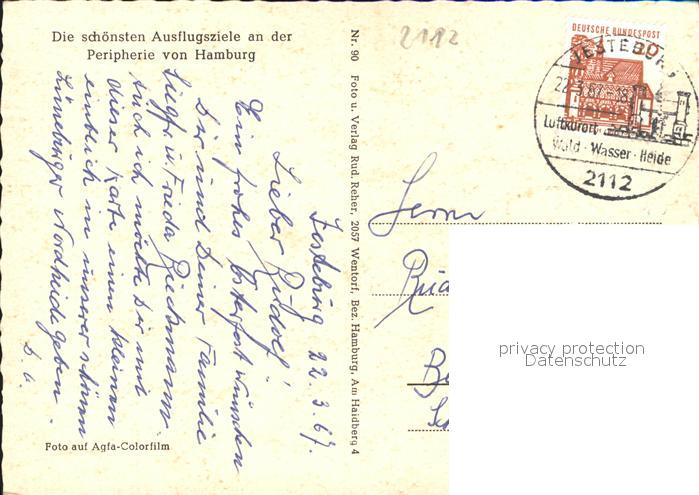 Die schönsten Ausflugsziele an der
Peripherie von Hamburg
Jesteburg 22.3.67.
Lieber Rudolf!
Ein frohes Osterfest wünschen
Dir und Deiner Familie
u. Frieda
auch ich möchte Dir mit
dieser Karte einen kleinen
einblick in unserer schönen
Lüneburger Nordheide geben.
b. a.
Foto auf Agfa-Colorfilm
Nr. 90 Foto u. Verlag Rud. Reher, 2057 Wentorf, Bez. Hamburg, Am Haidberg 4
2112
DEUTSCHE BUNDESPOST
JESTEBURG
22.3.67-18
Luftkurort
Wald·Wasser·Heide
2112
Herrn
privacy protection
Datenschutz